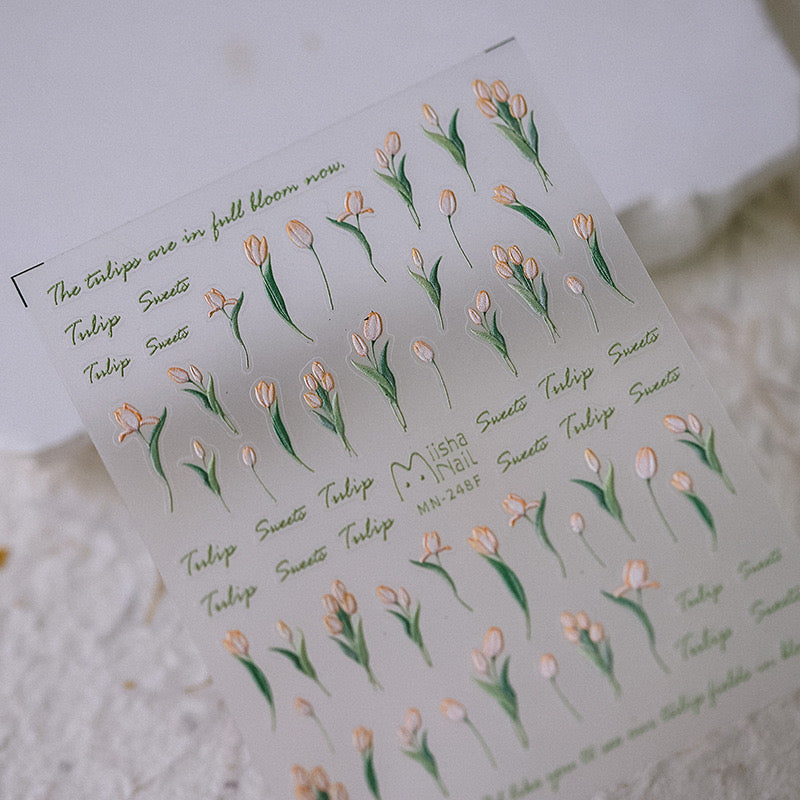 The tulips are in full bloom now.
Tulip Sweets
Tulip Sweets
Sweets Tulip Sweets
Sweets Tulip Sweets
Miisha
Nail
MN-248F
Tulip Sweets Tulip
Tulip Sweets Tulip
Tulip Sweets
Tulip Sweets
take you to see our tulip fields in